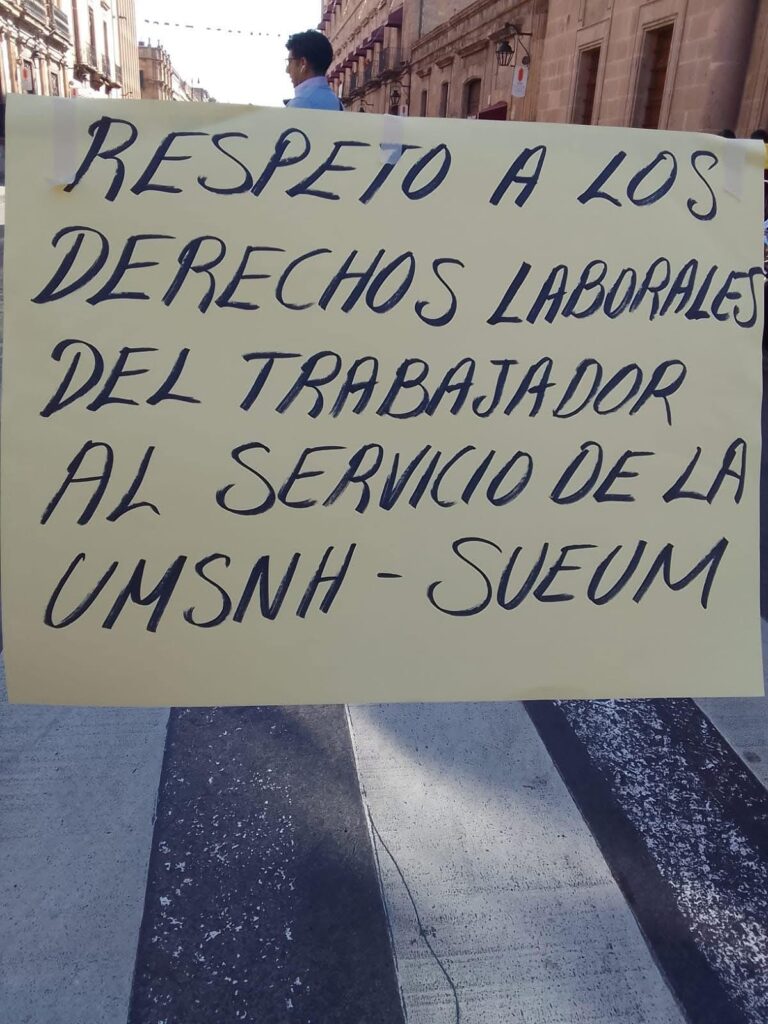 RESPETO A LOS
DERECHOS LABORALES
DEL TRABAJADOR
AL SERVICIO DE LA
UMSNH - SUEUM